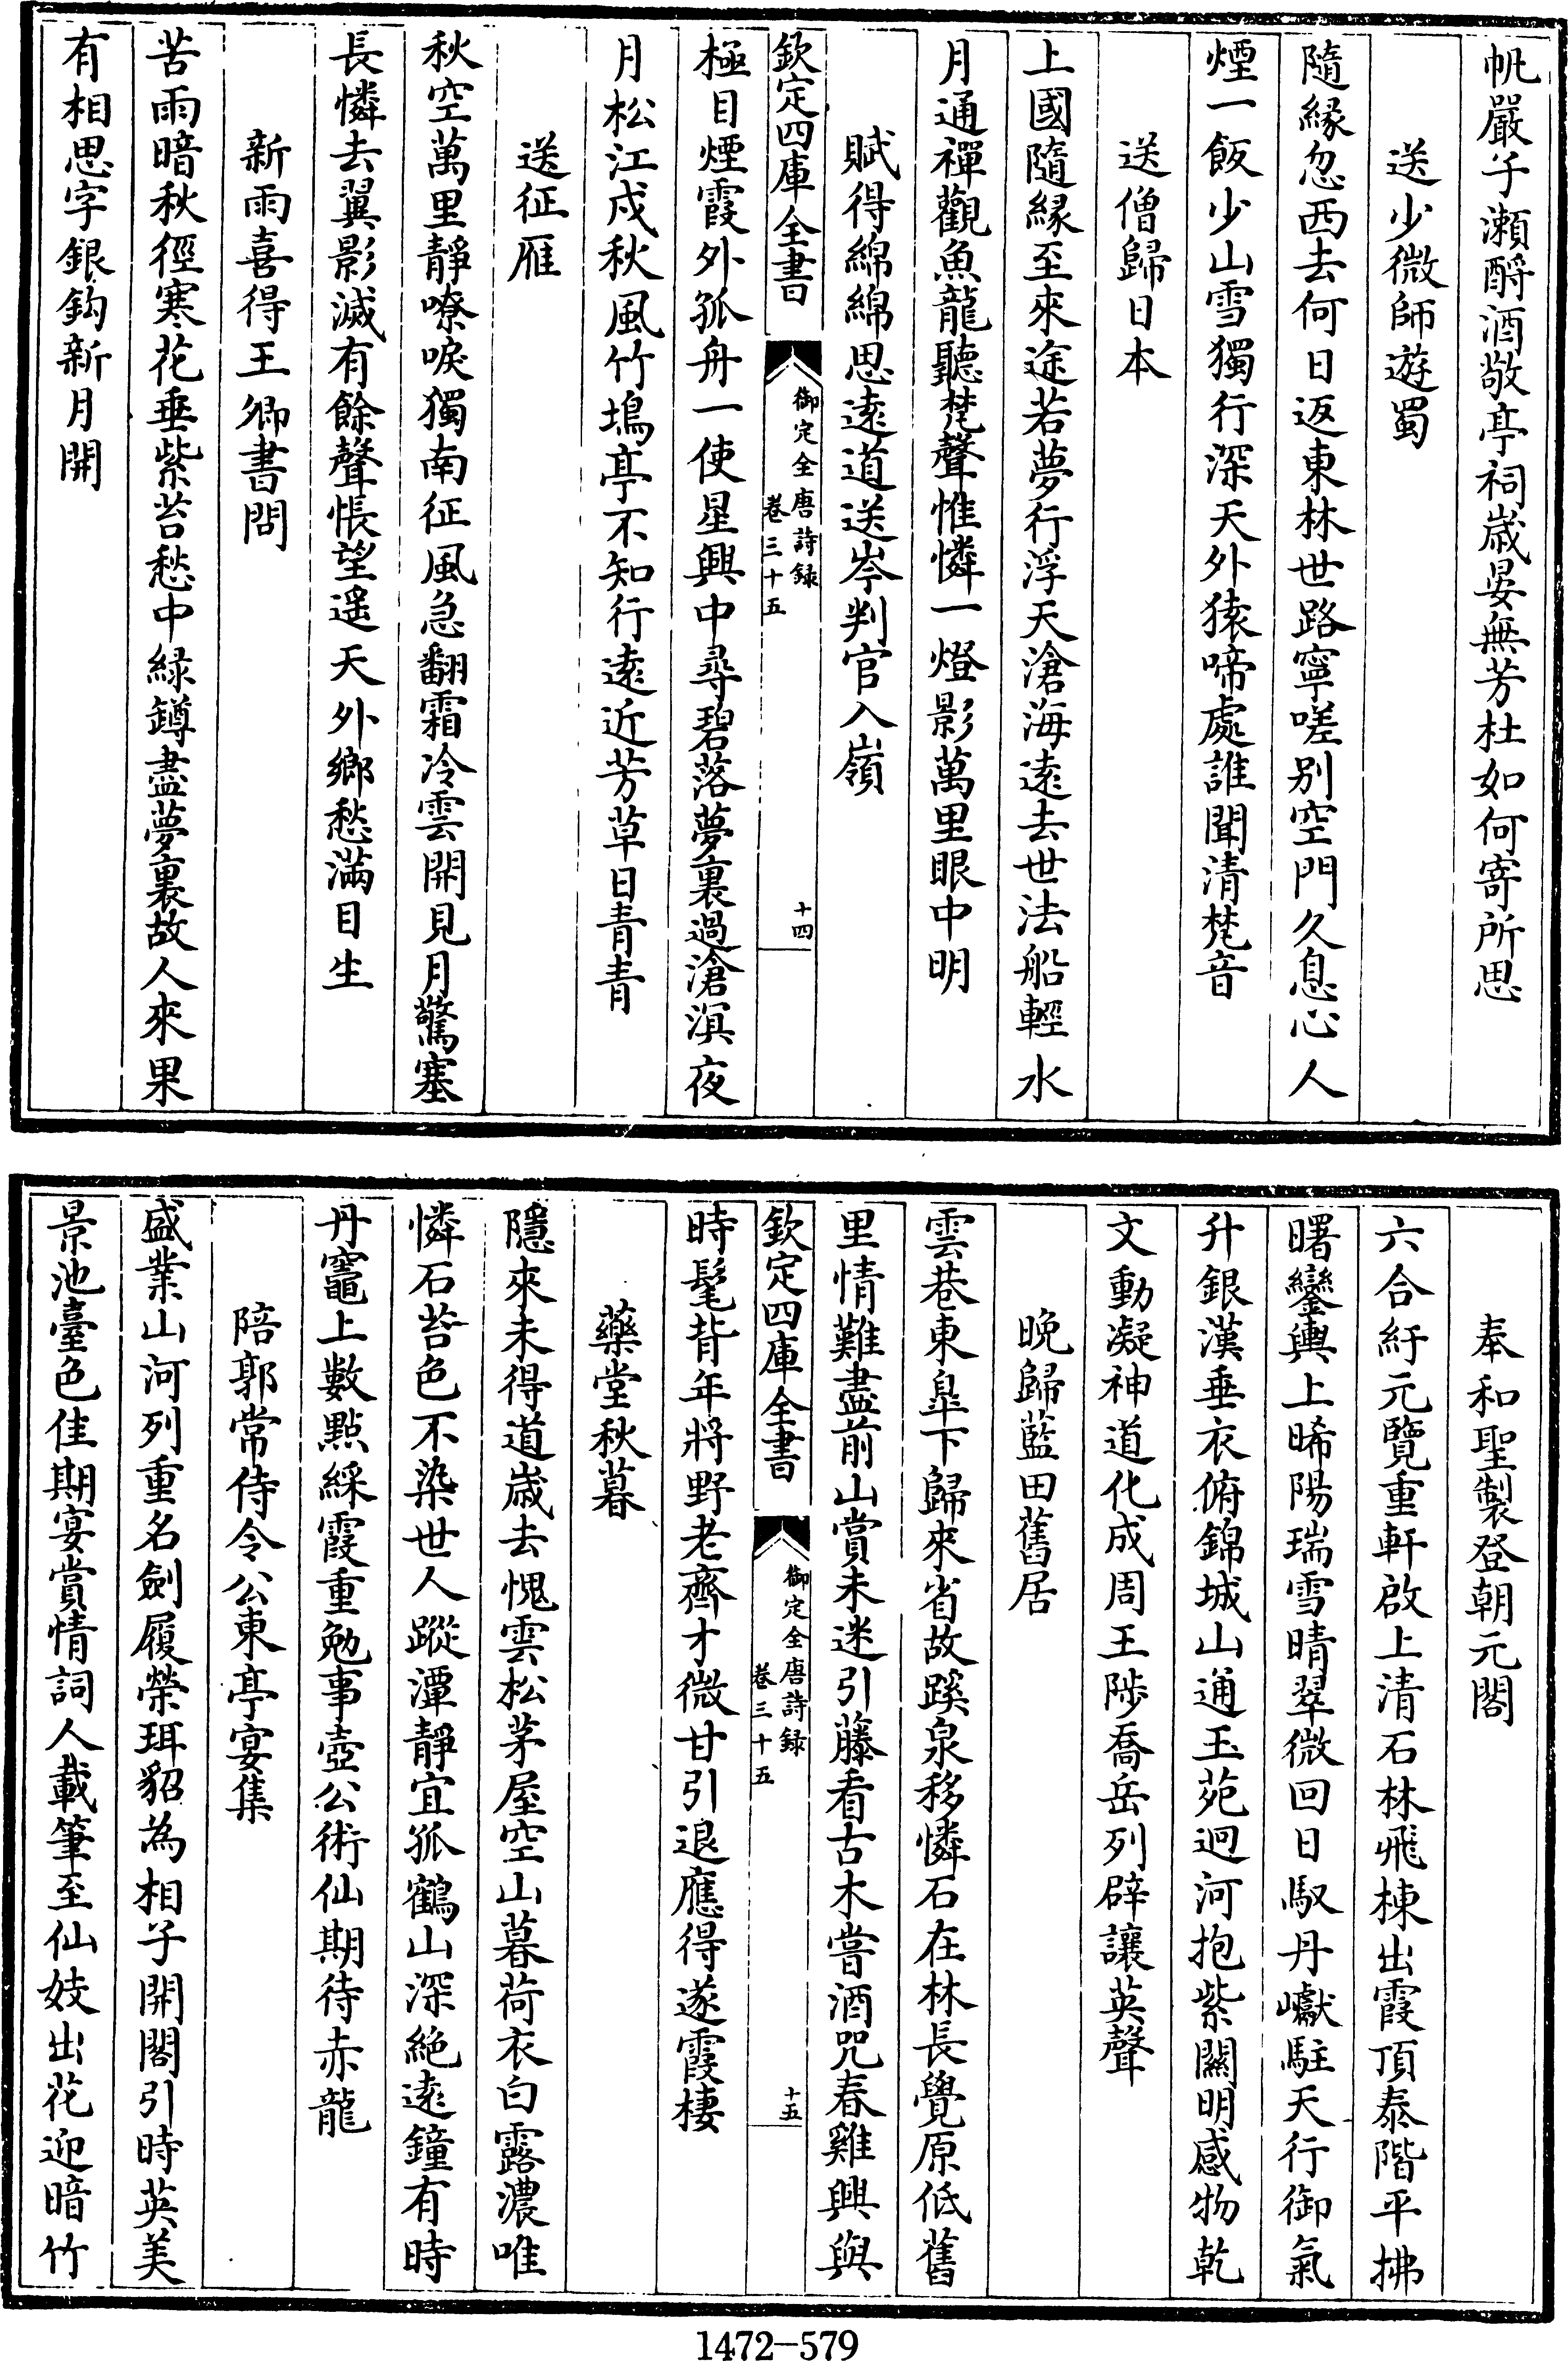 帆嚴子瀬酹酒敬亭祠歳晏無芳杜如何寄所思
送少微師遊蜀
隨緣忽西去何日返東林世路寧嗟别空門久息心人
煙一飯少山雪獨行深天外猿啼處誰聞清梵音
送僧歸日本
上國隨緣至來途若夢行浮天滄海遠去世法船輕水
月通禪觀魚龍聽梵聲惟憐一燈影萬里眼中明
賦得綿綿思遠道送岑判官入嶺
欽定四庫全書
御定全唐詩録
卷三十五
十四
極目煙霞外孤舟一使星興中尋碧落夢裏過滄溟夜
月松江戍秋風竹塢亭不知行遠近芳草日青青
送征雁
秋空萬里靜嘹唳獨南征風急翻霜冷雲開見月驚塞
長憐去翼影滅有餘聲悵望遥天外鄉愁滿目生
新雨喜得王卿書問
苦雨暗秋徑寒花垂紫苔愁中緑鐏盡夢裏故人來果
有相思字銀鈎新月開
奉和聖製登朝元閣
六合紆元覽重軒啟上清石林飛棟出霞頂泰階平拂
曙鑾輿上晞陽瑞雪晴翠微回日馭丹巘駐天行御氣
升銀漢垂衣俯錦城山通玉苑迥河抱紫關明感物乾
文動凝神道化成周王陟喬岳列辟讓英聲
晚歸藍田舊居
雲巷東臯下歸來省故蹊泉移憐石在林長覺原低舊
里情難盡前山賞未迷引藤看古木嘗酒咒春雞興與
欽定四庫全書
御定全唐詩録
卷三十五
十五
時髦背年將野老齊才微甘引退應得遂霞棲
藥堂秋暮
隱來未得道歳去愧雲松茅屋空山暮荷衣白露濃唯
憐石苔色不染世人蹤潭靜宜孤鶴山深絶遠鐘有時
丹竈上數點綵霞重勉事壺公術仙期待赤龍
陪郭常侍令公東亭宴集
盛業山河列重名劍履榮珥貂為相子開閣引時英美
景池臺色佳期宴賞情詞人載筆至仙妓出花迎暗竹
1472-579